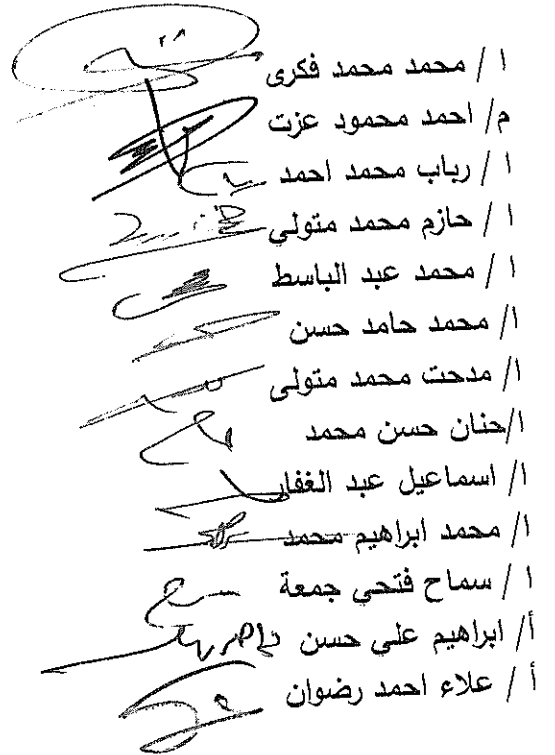 ا / محمد محمد فكرى
م/ احمد محمود عزت
ا / رباب محمد احمد
ا / حازم محمد متولي
ا / محمد عبد الباسط
ا/ محمد حامد حسن
ا/ مدحت محمد متولى
ا/حنان حسن محمد
ا/ اسماعيل عبد الغفار
ا/ محمد ابراهيم محمد
ا / سماح فتحي جمعة
أ/ ابراهيم علي حسن
أ / علاء احمد رضوان